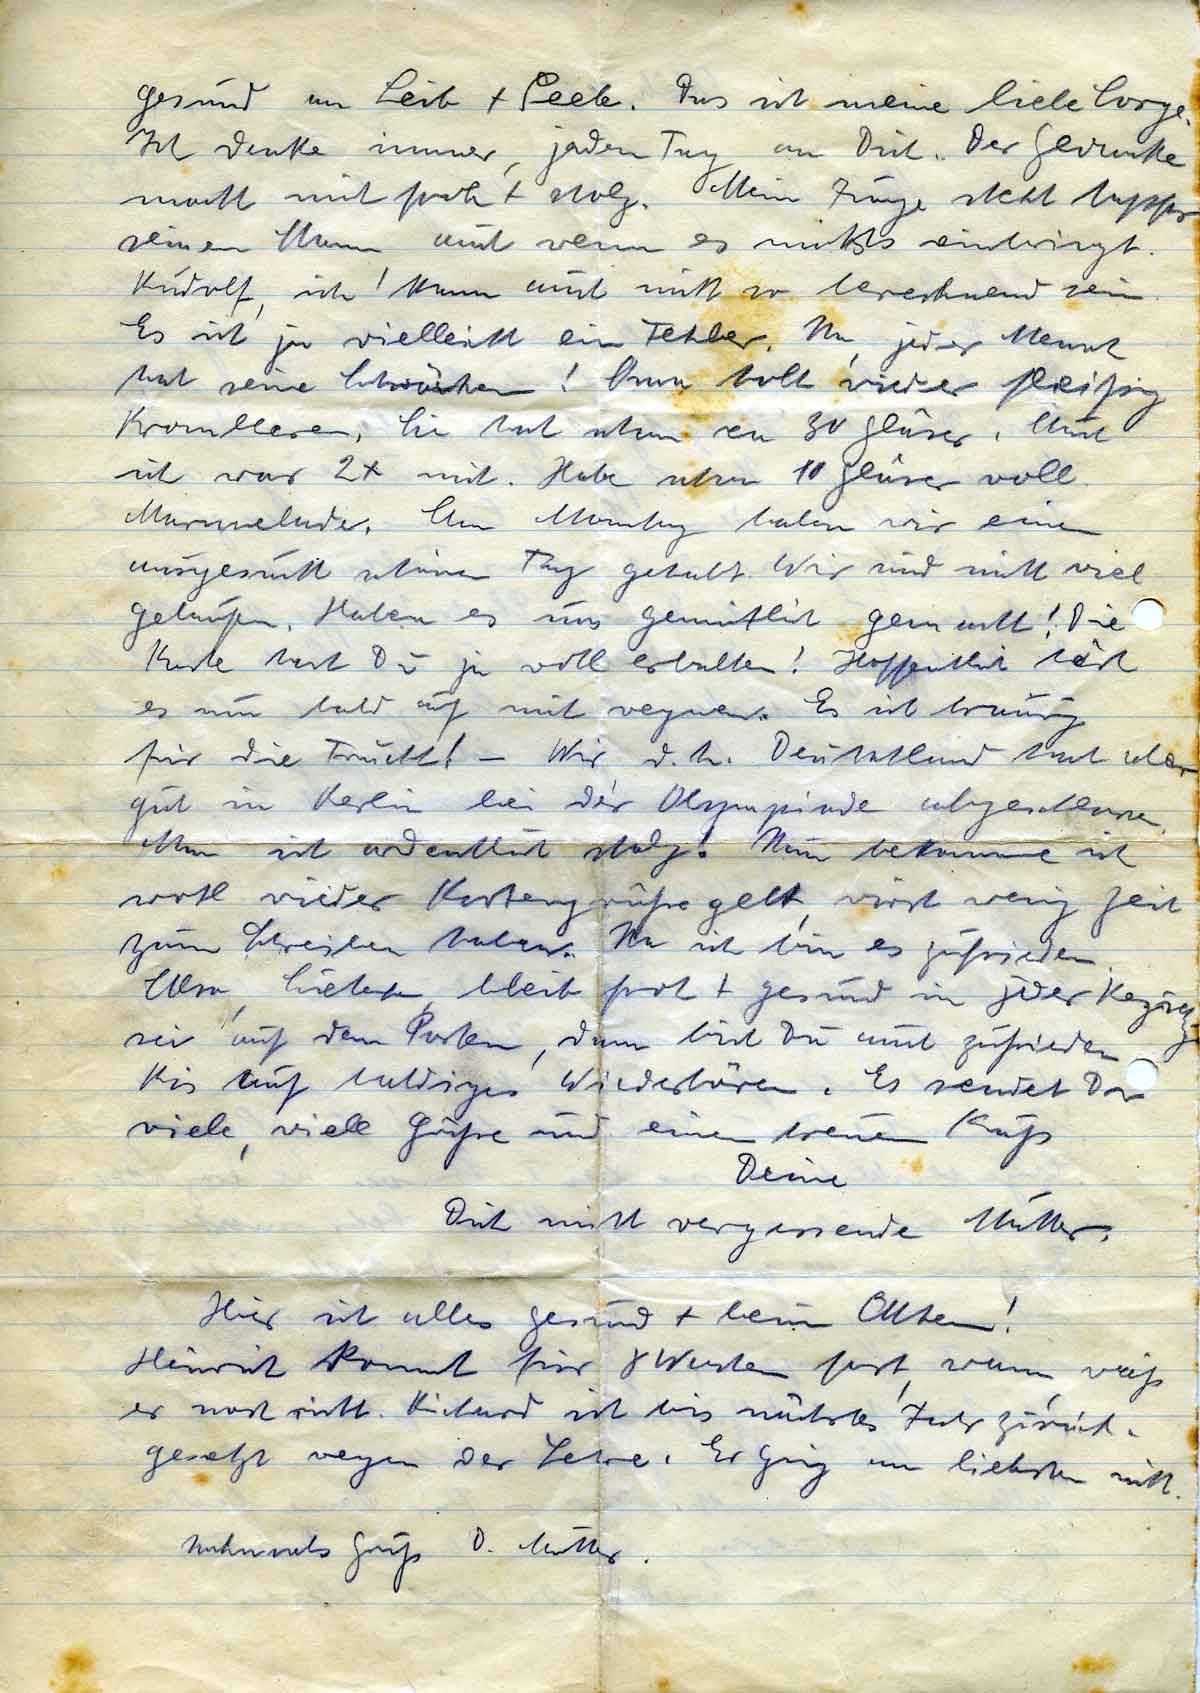 gesund an Leib + Seele. Das ist meine liebe Sorge.
Ich denke immer, jeden Tag an Dich. Der Gedanke
macht mich froh + stolz. Mein Junge steht tapfer
seinen Mann auch wenn es nichts einbringt.
Rudolf, ich kann auch nicht so berechnend sein.
Es ist ja vielleicht ein Fehler. Na, jeder Mensch
hat seine Schwächen! Oma holt wieder fleißig
Brombeeren. Sie hat schon ca 30 Gläser. Auch
ich war 2x mit. Habe schon 10 Gläser voll
Marmelade. Am Montag haben wir einen
ausgesucht schönen Tag gehabt. Wir sind nicht viel
gelaufen. Haben es uns gemütlich gemacht! Die
Karte hast Du ja wohl erhalten! Hoffentlich hört
es nun bald auf mit regnen. Es ist traurig
für die Frucht! – Wir d.h. Deutschland hat aber
gut in Berlin bei der Olympiade abgeschlossen.
Man ist ordentlich stolz! Nun bekomme ich
wohl wieder Kartengrüße gelt, wirst wenig Zeit
zum Schreiben haben. Na ich bin es zufrieden.
Also, Liebster, bleib froh + gesund in jeder Beziehg
sei auf dem Posten, dann bist Du auch zufrieden
Bis auf baldiges Wiederhören. Es sendet Dir
viele, viele Grüße und einen treuen Kuß
Deine
Dich nicht vergessende Mutter.
Hier ist alles gesund + beim Alten!
Heinrich kommt für 8 Wochen fort, wann weiß
er noch nicht. Richard ist bis nächstes Jahr zurück-
gesetzt wegen der Lehre. Er ging am liebsten mit.
Nochmals Gruß D. Mutter.